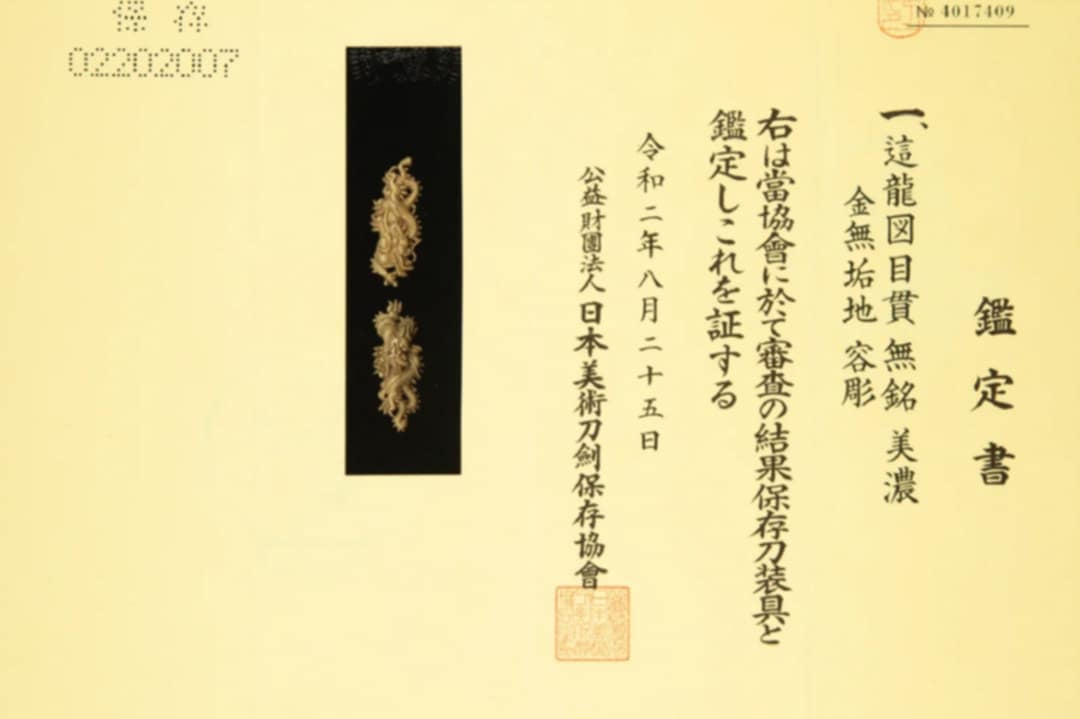 鑑定書
№ 4017409
一、這龍図目貫 無銘 美濃
金無垢地 容彫
右は當協會に於て審査の結果保存刀装具と
鑑定しこれを証する
令和二年八月二十五日
公益財團法人 日本美術刀劍保存協會
保存
02202007